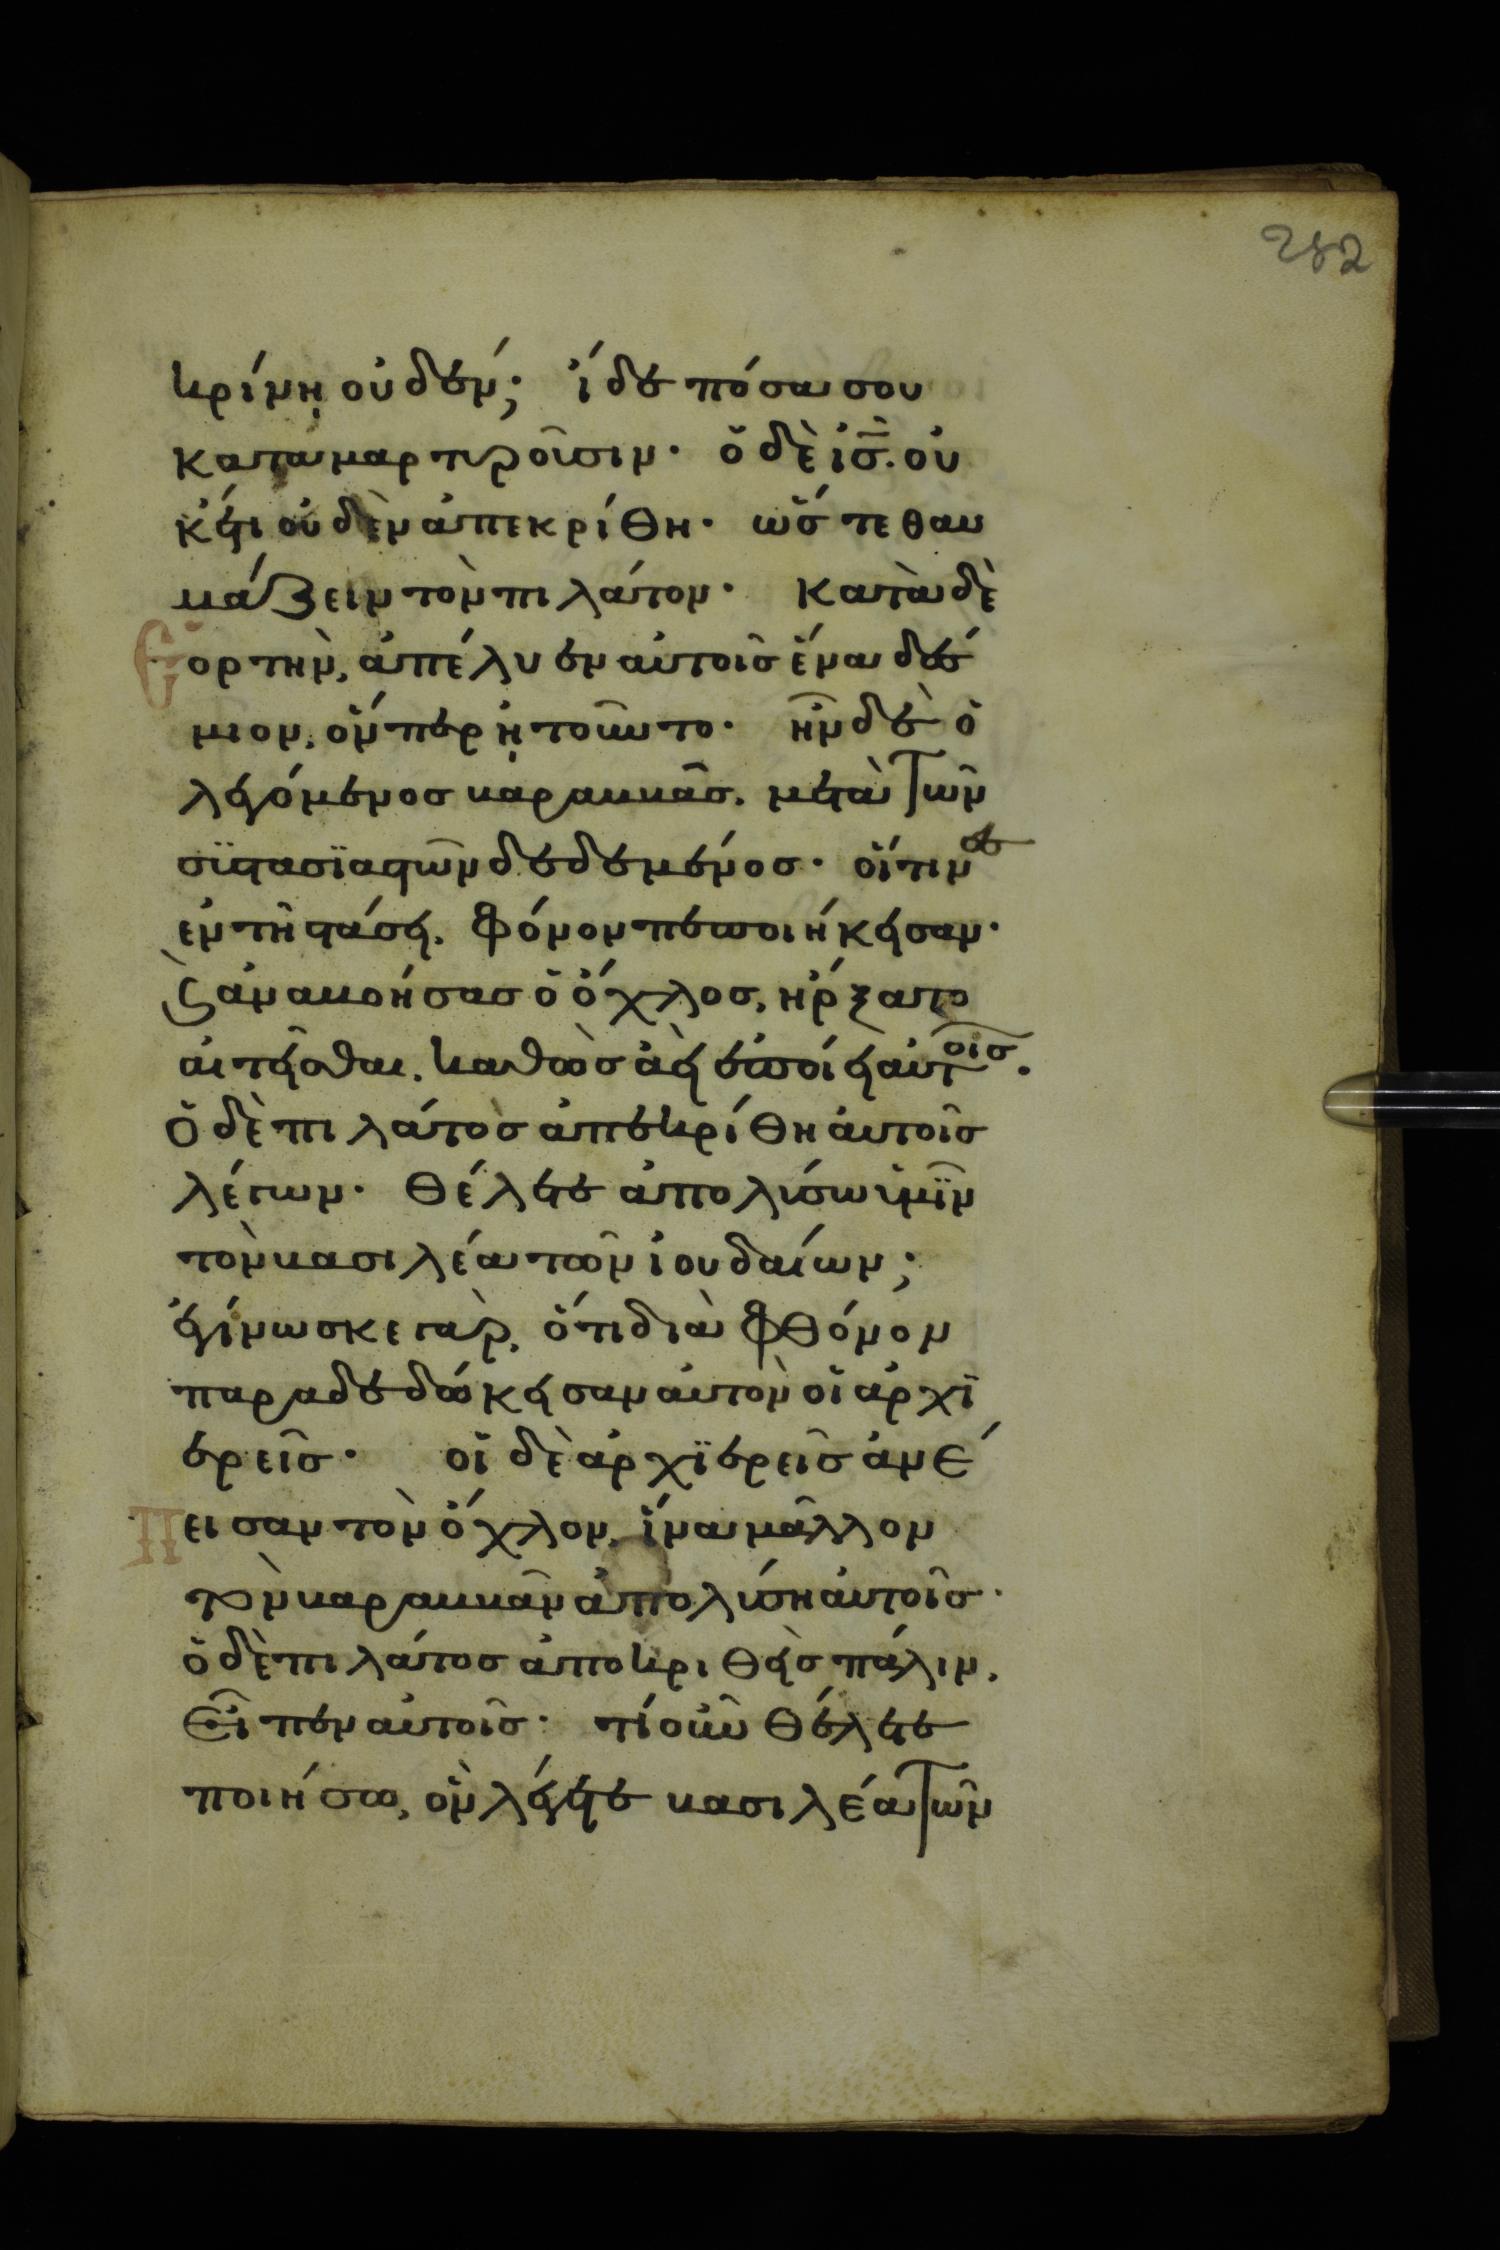 282
κρίνῃ οὐδέν; ἴδε πόσα σου
καταμαρτυροῦσιν· ὁ δὲ ἰ̅σ̅. οὐ
κέτι οὐδὲν ἀπεκρίθη· ὥστε θαυ
μάζειν τὸν πιλάτον· Κατὰ δὲ
Ἑορτὴν, ἀπέλυεν αὐτοῖς ἕνα δέσ
μιον, ὅνπερ ᾐτοῦντο· ἦν δὲ ὁ
λεγόμενος βαραββᾶς, μετὰ τῶν
συστασϊαστῶν δεδεμένος· οἵτινες
ἐν τῇ στάσει, φόνον πεποιήκεισαν·
Καὶ ἀναβοήσας ὁ ὄχλος, ἤρξατο
αἰτεῖσθαι, καθὼς ἀεὶ ἐποίει αὐτοῖς.
ὁ δὲ πιλάτος ἀπεκρίθη αὐτοῖς
λέγων· θέλετε ἀπολύσω ὑμῖν
τὸν βασιλέα τῶν ἰουδαίων;
ἐγίνωσκε γὰρ, ὅτι διὰ φθόνον
παραδεδώκεισαν αὐτὸν οἱ ἀρχϊ
ερεῖς· οἱ δὲ ἀρχϊερεῖς ἀνέ
Πεισαν τὸν ὄχλον, ἵνα μᾶλλον
τὸν βαραββᾶν ἀπολύσῃ αὐτοῖς·
ὁ δὲ πιλάτος ἀποκριθεὶς πάλιν,
εἶπεν αὐτοῖς· τί οὖν θέλετε
ποιήσω, ὃν λέγετε βασιλέα τῶν